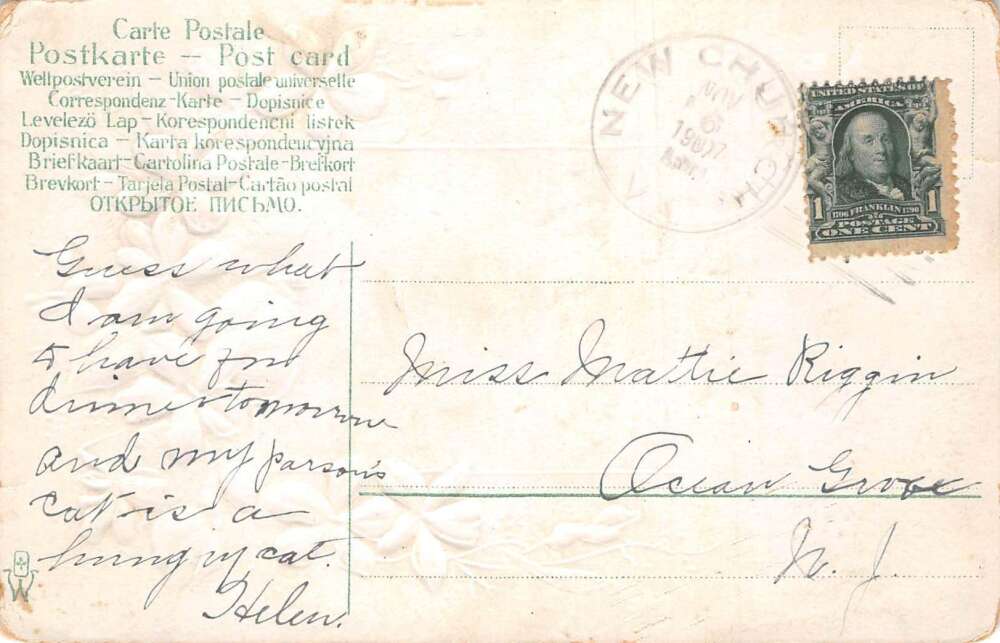 Carte Postale
Postkarte – Post card
Weltpostverein – Union postale universelle
Correspondenz-Karte – Dopisnice
Levelező Lap – Korespondenční lístek
Dopisnica – Karta korespondencyjna
Briefkaart – Cartolina Postale – Brefkort
Brevkort – Tarjela Postal – Cartão postal
ОТКРЫТОЕ ПИСЬМО.
NEW CHURCH VA
NOV
6
1907
UNITED STATES OF
AMERICA
1706 FRANKLIN 1790
1 POSTAGE 1
ONE CENT
Guess what
I am going
to have for
dinner tomorrow
and my parson's
cat is a
hungry cat.
Helen.
Miss Mattie Riggin
Ocean Grove
N. J.